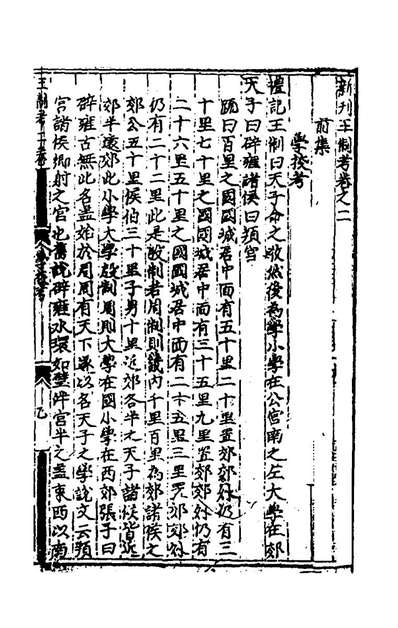 新刊王制考卷之二
前集
學校考
禮記王制曰天子命之教然後為學小學在公宮南之左大學在郊
天子曰辟雍諸侯曰頖宮
疏曰百里之國國城居中面有五十里二十里置郊郊外仍有三
十里七十里之國國城居中面有三十五里九里置郊郊外仍有
二十六里五十里之國國城居中面有二十五里三里置郊郊外
仍有二十二里此是殷制若周制則畿內千里百里為郊諸侯之
郊公五十里侯伯三十里子男十里近郊各半之天子諸侯皆近
郊半遠郊此小學大學殷制周則大學在國小學在西郊張子曰
辟雍古無此名蓋始於周周有天下遂以名天子之學說文云頖
宮諸侯鄉射之宮也舊說辟雍水環如璧泮宮半之蓋東西以南
王制考卷二
學校考
乙